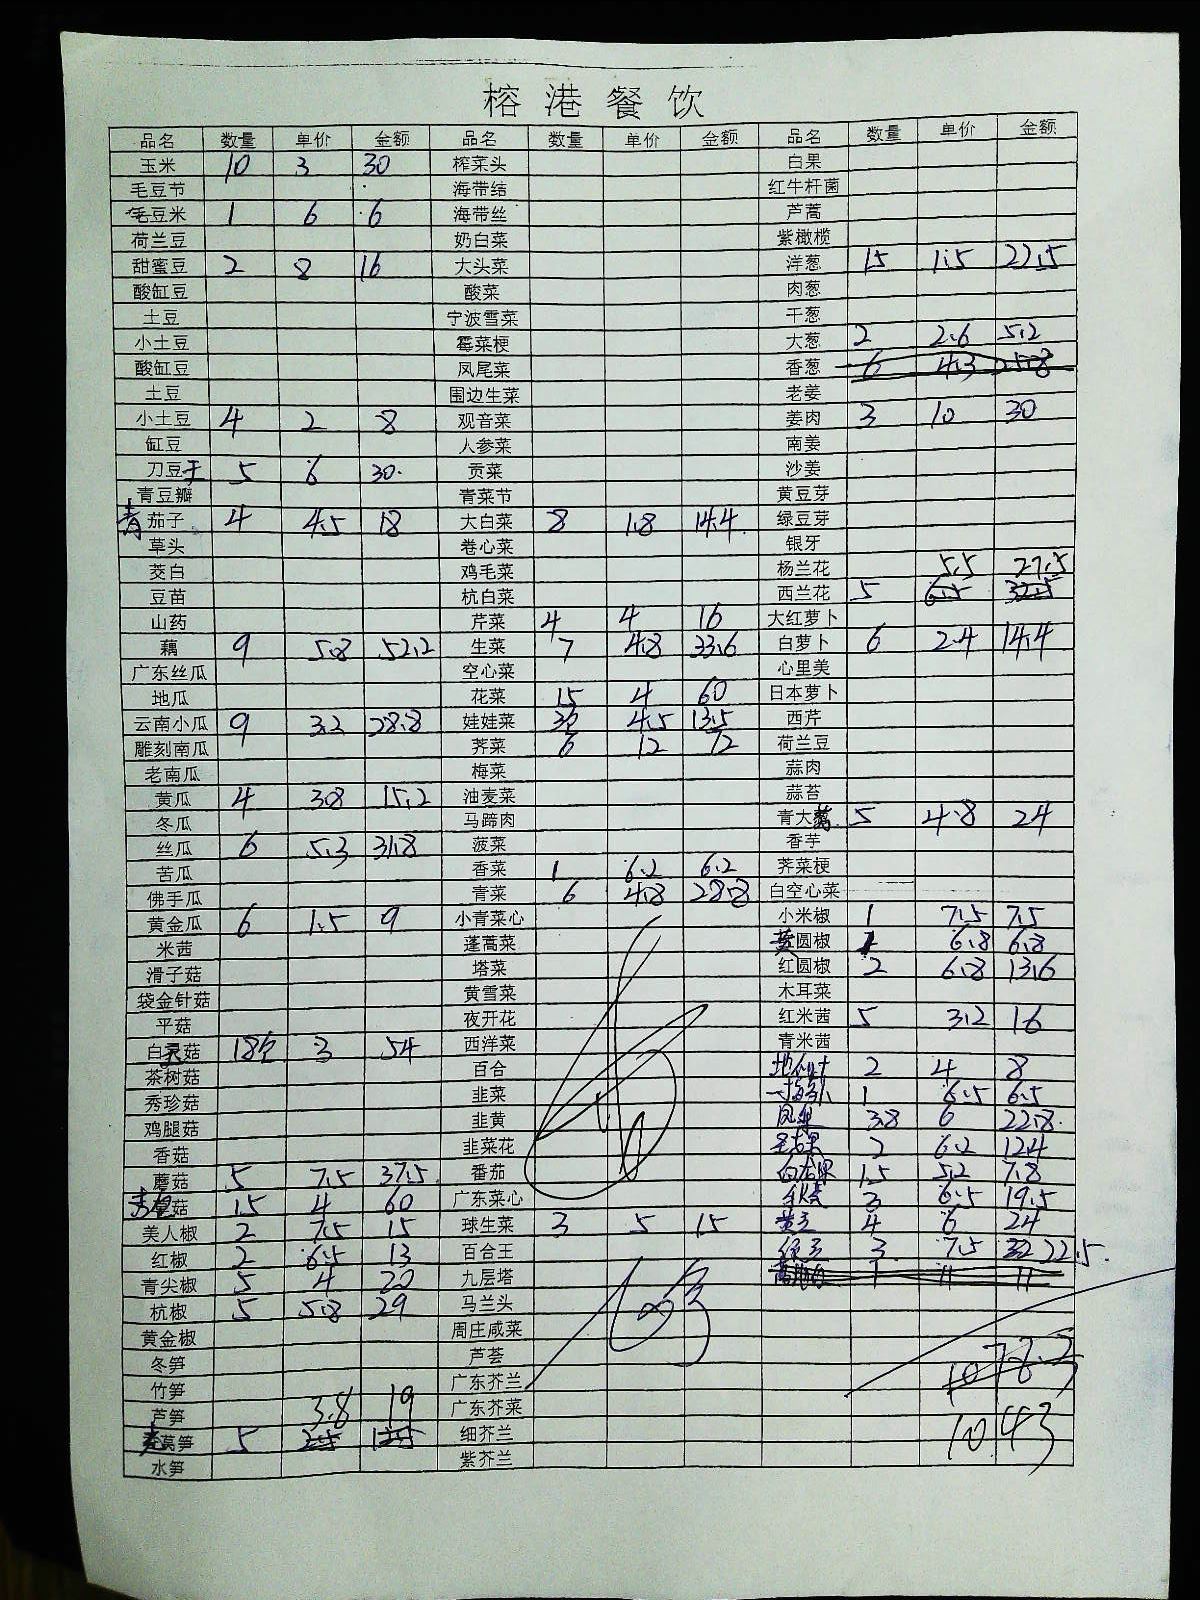 榕港餐饮
品名 数量 单价 金额 品名 数量 单价 金额 品名 数量 单价 金额
玉米 10 3 30 榨菜头 白果
毛豆节 海带结 红牛杆菌
毛豆米 1 6 6 海带丝 芦蒿
荷兰豆 奶白菜 紫橄榄
甜蜜豆 2 8 16 大头菜 洋葱 15 1.5 22.5
酸缸豆 酸菜 肉葱
土豆 宁波雪菜 干葱
小土豆 霉菜梗 大葱 2 2.6 5.2
酸缸豆 凤尾菜 香葱 6 4.3 25.8
土豆 围边生菜 老姜
小土豆 4 2 8 观音菜 姜肉 3 10 30
缸豆 人参菜 南姜
刀豆 5 6 30 贡菜 沙姜
青豆瓣 青菜节 黄豆芽
青茄子 4 4.5 18 大白菜 8 1.8 14.4 绿豆芽
草头 卷心菜 银牙
茭白 鸡毛菜 杨兰花 5.5 27.5
豆苗 杭白菜 西兰花 5 6.5 32.5
山药 芹菜 4 4 16 大红萝卜
藕 9 5.8 52.2 生菜 7 4.8 33.6 白萝卜 6 2.4 14.4
广东丝瓜 空心菜 心里美
地瓜 花菜 15 4 60 日本萝卜
云南小瓜 9 3.2 28.8 娃娃菜 3包 4.5 13.5 西芹
雕刻南瓜 荠菜 6 12 72 荷兰豆
老南瓜 梅菜 蒜肉
黄瓜 4 3.8 15.2 油麦菜 蒜苔
冬瓜 马蹄肉 青大 5 4.8 24
丝瓜 6 5.3 31.8 菠菜 香芋
苦瓜 香菜 1 6.2 6.2 荠菜梗
佛手瓜 青菜 6 4.8 28.8 白空心菜
黄金瓜 6 1.5 9 小青菜心 小米椒 1 7.5 7.5
米茜 蓬蒿菜 黄圆椒 1 6.8 6.8
滑子菇 塔菜 红圆椒 2 6.8 13.6
袋金针菇 黄雪菜 木耳菜
平菇 夜开花 红米茜 5 3.2 16
白灵菇 18包 3 54 西洋菜 青米茜
茶树菇 百合 2 4 8
秀珍菇 韭菜 1 6.5 6.5
鸡腿菇 韭黄 3.8 6 22.8
香菇 韭菜花 2 6.2 12.4
蘑菇 5 7.5 37.5 番茄 1.5 5.2 7.8
菇 15 4 60 广东菜心 3 6.5 19.5
美人椒 2 7.5 15 球生菜 3 5 15 4 6 24
红椒 2 6.5 13 百合王 3 7.5 22.5
青尖椒 5 4 20 九层塔 1 11 11
杭椒 5 5.8 29 马兰头
黄金椒 周庄咸菜
冬笋 芦荟 1078.3
竹笋 广东芥兰
芦笋 3.8 19 广东芥菜
莴笋 5 2.5 12.5 细芥兰 1043
水笋 紫芥兰